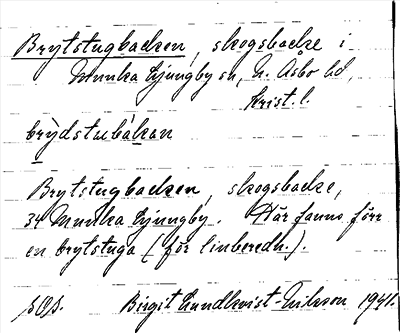 Brytstugbacken, skogsbacke i
Munka Ljungby sn, N. Åsbo hd,
Krist. l.
brỳdstubákan
Brytstugbacken, skogsbacke,
34 Munka Ljungby. Här fanns förr
en brytstuga (för linberedn.).
Birgit Lundkvist-Nilsson 1941.